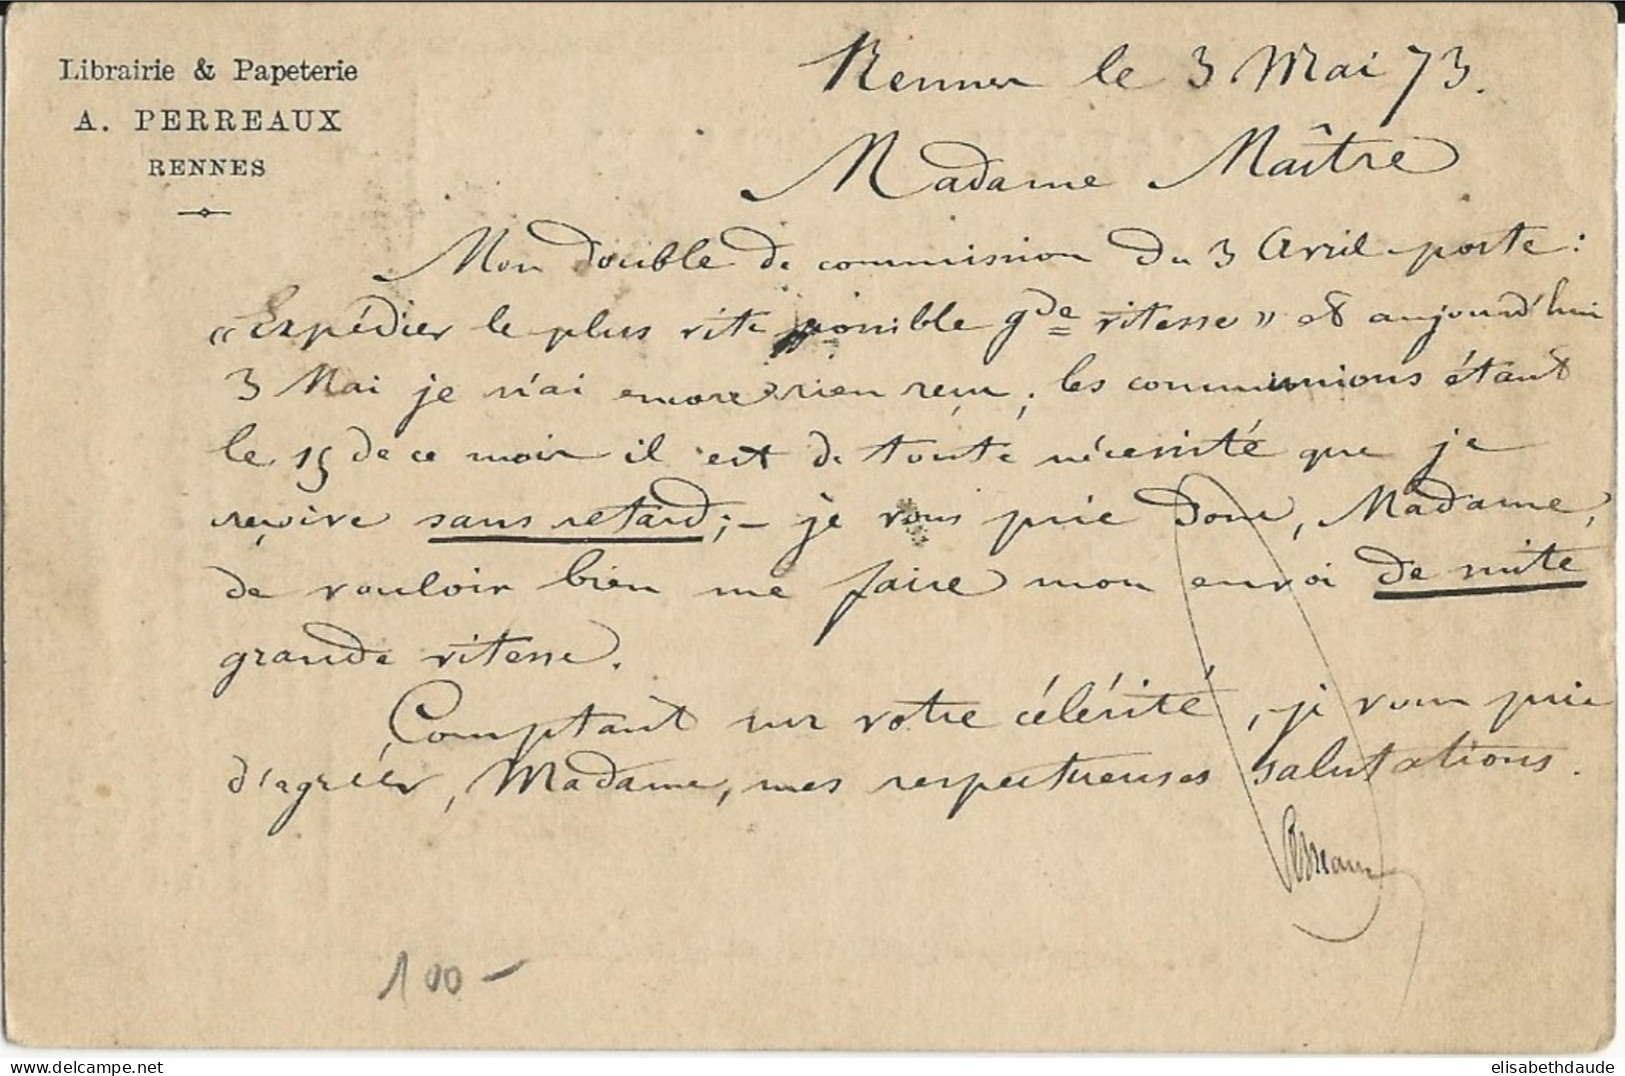 Librairie & Papeterie
A. PERREAUX
RENNES
Rennes le 3 Mai 73.
Madame Maître
Mon double de commission du 3 Avril porte :
"Expédier le plus vite possible gde vitesse" et aujourd'hui
3 Mai je n'ai encore rien reçu ; les communions étant
le 15 de ce mois il est de toute nécessité que je
reçoive sans retard ; – je vous prie donc, Madame,
de vouloir bien me faire mon envoi de suite
grande vitesse.
Comptant sur votre célérité, je vous prie
d'agréer, Madame, mes respectueuses salutations.
Perreaux
100 –
elisabethdaude